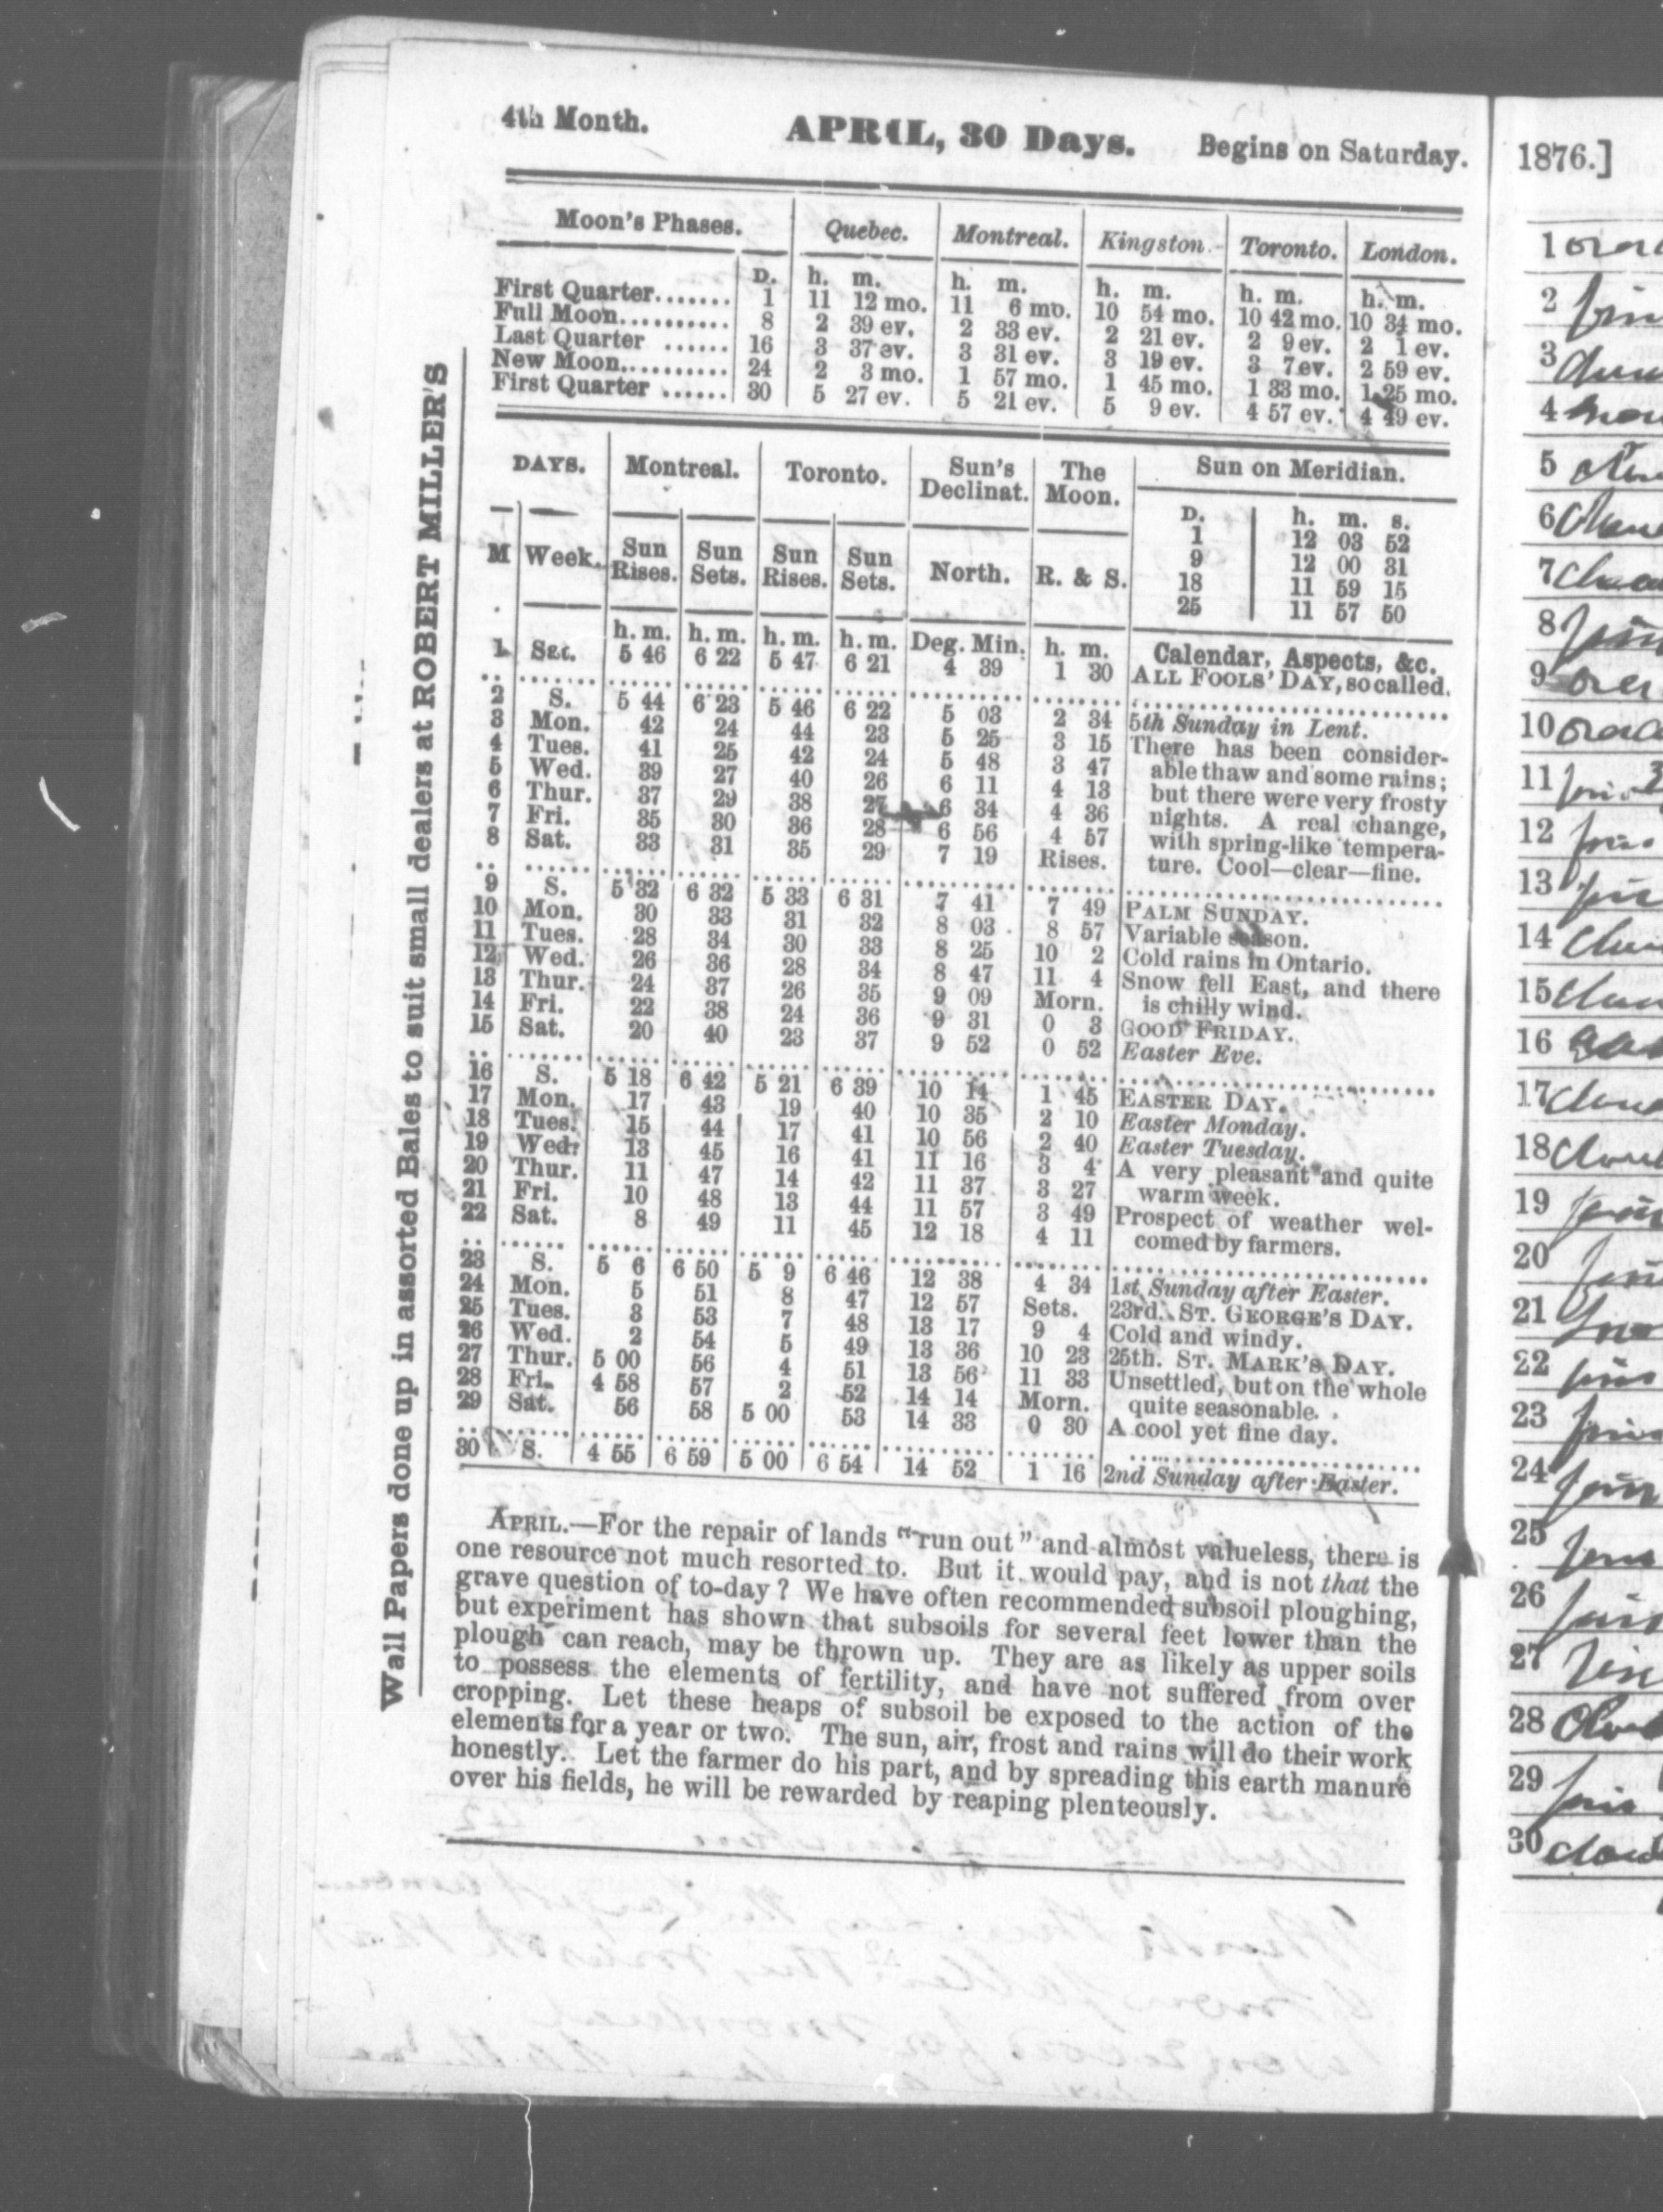 4th Month. APRIL, 30 Days. Begins on Saturday.
Moon's Phases. Quebec. Montreal. Kingston. Toronto. London.
D. h. m. h. m. h. m. h. m. h. m.
First Quarter....... 1 11 12 mo. 11 6 mo. 10 54 mo. 10 42 mo. 10 34 mo.
Full Moon........... 8 2 39 ev. 2 33 ev. 2 21 ev. 2 9 ev. 2 1 ev.
Last Quarter ...... 16 3 37 ev. 3 31 ev. 3 19 ev. 3 7 ev. 2 59 ev.
New Moon........... 24 2 3 mo. 1 57 mo. 1 45 mo. 1 33 mo. 1 25 mo.
First Quarter ...... 30 5 27 ev. 5 21 ev. 5 9 ev. 4 57 ev. 4 49 ev.
DAYS. Montreal. Toronto. Sun's Declinat. The Moon. Sun on Meridian.
D. h. m. s.
1 12 03 52
9 12 00 31
18 11 59 15
25 11 57 50
M Week. Sun Rises. Sun Sets. Sun Rises. Sun Sets. North. R. & S.
h. m. h. m. h. m. h. m. Deg. Min. h. m. Calendar, Aspects, &c.
1 Sat. 5 46 6 22 5 47 6 21 4 39 1 30 ALL FOOLS' DAY, so called.
2 S. 5 44 6 23 5 46 6 22 5 03 2 34 5th Sunday in Lent.
3 Mon. 42 24 44 23 5 25 3 15 There has been consider-
4 Tues. 41 25 42 24 5 48 3 47 able thaw and some rains;
5 Wed. 39 27 40 26 6 11 4 13 but there were very frosty
6 Thur. 37 29 38 27 6 34 4 36 nights. A real change,
7 Fri. 35 30 36 28 6 56 4 57 with spring-like tempera-
8 Sat. 33 31 35 29 7 19 Rises. ture. Cool—clear—fine.
9 S. 5 32 6 32 5 33 6 31 7 41 7 49 PALM SUNDAY.
10 Mon. 30 33 31 32 8 03 8 57 Variable season.
11 Tues. 28 34 30 33 8 25 10 2 Cold rains in Ontario.
12 Wed. 26 36 28 34 8 47 11 4 Snow fell East, and there
13 Thur. 24 37 26 35 9 09 Morn. is chilly wind.
14 Fri. 22 38 24 36 9 31 0 3 GOOD FRIDAY.
15 Sat. 20 40 23 37 9 52 0 52 Easter Eve.
16 S. 5 18 6 42 5 21 6 39 10 14 1 45 EASTER DAY.
17 Mon. 17 43 19 40 10 35 2 10 Easter Monday.
18 Tues. 15 44 17 41 10 56 2 40 Easter Tuesday.
19 Wed. 13 45 16 41 11 16 3 4 A very pleasant and quite
20 Thur. 11 47 14 42 11 37 3 27 warm week.
21 Fri. 10 48 13 44 11 57 3 49 Prospect of weather wel-
22 Sat. 8 49 11 45 12 18 4 11 comed by farmers.
23 S. 5 6 6 50 5 9 6 46 12 38 4 34 1st Sunday after Easter.
24 Mon. 5 51 8 47 12 57 Sets. 23rd. ST. GEORGE'S DAY.
25 Tues. 3 53 7 48 13 17 9 4 Cold and windy.
26 Wed. 2 54 5 49 13 36 10 23 25th. ST. MARK'S DAY.
27 Thur. 5 00 56 4 51 13 56 11 33 Unsettled, but on the whole
28 Fri. 4 58 57 2 52 14 14 Morn. quite seasonable.
29 Sat. 56 58 5 00 53 14 33 0 30 A cool yet fine day.
30 S. 4 55 6 59 5 00 6 54 14 52 1 16 2nd Sunday after Easter.
APRIL.—For the repair of lands "run out" and almost valueless, there is
one resource not much resorted to. But it would pay, and is not that the
grave question of to-day? We have often recommended subsoil ploughing,
but experiment has shown that subsoils for several feet lower than the
plough can reach, may be thrown up. They are as likely as upper soils
to possess the elements of fertility, and have not suffered from over
cropping. Let these heaps of subsoil be exposed to the action of the
elements for a year or two. The sun, air, frost and rains will do their work
honestly. Let the farmer do his part, and by spreading this earth manure
over his fields, he will be rewarded by reaping plenteously.
Wall Papers done up in assorted Bales to suit small dealers at ROBERT MILLER'S
1876.]
1
2
3
4
5
6
7
8
9
10
11
12
13
14
15
16
17
18
19
20
21
22
23
24
25
26
27
28
29
30